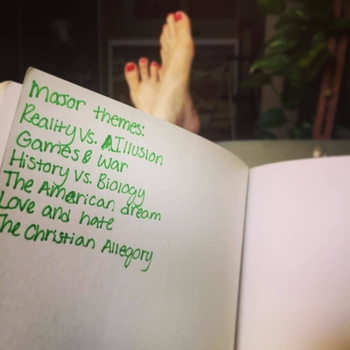 Major themes:
Reality vs. Illusion
Games & War
History vs. Biology
The American dream
Love and hate
The Christian Allegory